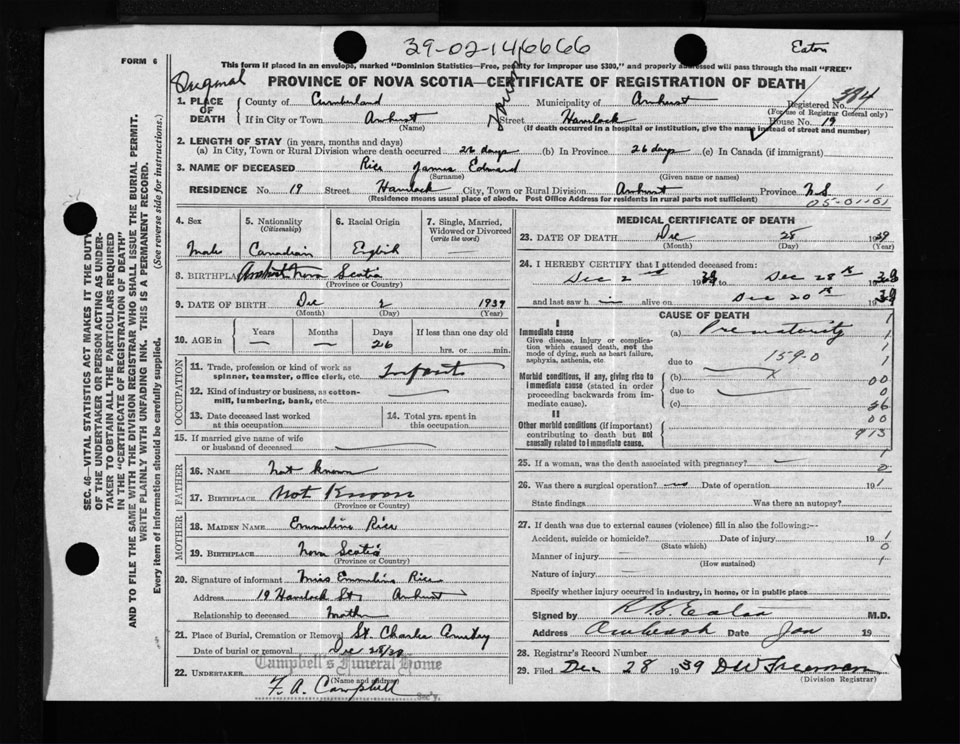 39-02-146666
Eaton
FORM 6
This form if placed in an envelope, marked "Dominion Statistics—Free, penalty for improper use $300," and properly addressed will pass through the mail "FREE"
Original
PROVINCE OF NOVA SCOTIA—CERTIFICATE OF REGISTRATION OF DEATH
1. PLACE OF DEATH
County of Cumberland Municipality of Amherst Registered No. 384
(For use of Registrar General only)
If in City or Town Amherst Street Hamlock House No. 19
(Name) (If death occurred in a hospital or institution, give the name instead of street and number)
2. LENGTH OF STAY (in years, months and days)
(a) In City, Town or Rural Division where death occurred 26 days (b) In Province 26 days (c) In Canada (if immigrant)
3. NAME OF DECEASED Rice James Edward
(Surname) (Given name or names)
RESIDENCE No. 19 Street Hamlock City, Town or Rural Division Amherst Province N.S 1
(Residence means usual place of abode. Post Office Address for residents in rural parts not sufficient)
05-01101
4. Sex
Male
5. Nationality
(Citizenship)
Canadian
6. Racial Origin
English
7. Single, Married, Widowed or Divorced
(write the word)
8. BIRTHPLACE Amherst Nova Scotia
(Province or Country)
9. DATE OF BIRTH Dec 2 1939
(Month) (Day) (Year)
10. AGE in
Years Months Days If less than one day old
— — 26 hrs. or min.
OCCUPATION
11. Trade, profession or kind of work as spinner, teamster, office clerk, etc. Infant
12. Kind of industry or business, as cotton-mill, lumbering, bank, etc.
13. Date deceased last worked at this occupation
14. Total yrs. spent in this occupation
15. If married give name of wife or husband of deceased
FATHER
16. Name Not known
17. Birthplace Not Known
(Province or Country)
MOTHER
18. Maiden Name Emmeline Rice
19. Birthplace Nova Scotia
(Province or Country)
20. Signature of informant Miss Emmeline Rice
Address 19 Hamlock St, Amherst
Relationship to deceased Mother
21. Place of Burial, Cremation or Removal St. Charles
Date of burial or removal Dec 28/39
Campbell's Funeral Home
22. Undertaker F. A. Campbell
(Name and address)
MEDICAL CERTIFICATE OF DEATH
23. DATE OF DEATH Dec 28 1939
(Month) (Day) (Year)
24. I HEREBY CERTIFY that I attended deceased from:
Dec 2nd 1939 to Dec 28th 1939
and last saw h im alive on Dec 20th 1939
CAUSE OF DEATH
I
Immediate cause
Give disease, injury or complication which caused death, not the mode of dying, such as heart failure, asphyxia, asthenia, etc.
(a) Prematurity
due to 159.0
Morbid conditions, if any, giving rise to immediate cause (stated in order proceeding backwards from immediate cause).
(b)
due to
(c)
II
Other morbid conditions (if important) contributing to death but not causally related to immediate cause.
1
1
1
1
00
0
26
00
913
25. If a woman, was the death associated with pregnancy? — 1
2
26. Was there a surgical operation? no Date of operation 19 1
State findings Was there an autopsy?
27. If death was due to external causes (violence) fill in also the following:—
Accident, suicide or homicide? Date of injury 19 1
(State which) 0
Manner of injury 1
(How sustained)
Nature of injury
Specify whether injury occurred in industry, in home, or in public place
Signed by R. B. Eaton M.D.
Address Date Jan 19
28. Registrar's Record Number
29. Filed Dec 28 1939 D W Freeman
(Division Registrar)
SEC. 46—VITAL STATISTICS ACT MAKES IT THE DUTY
OF THE UNDERTAKER OR PERSON ACTING AS UNDER-
TAKER TO OBTAIN ALL THE PARTICULARS REQUIRED
IN THE "CERTIFICATE OF REGISTRATION OF DEATH"
AND TO FILE THE SAME WITH THE DIVISION REGISTRAR WHO SHALL ISSUE THE BURIAL PERMIT.
WRITE PLAINLY WITH UNFADING INK. THIS IS A PERMANENT RECORD.
Every item of information should be carefully supplied. (See reverse side for instructions.)